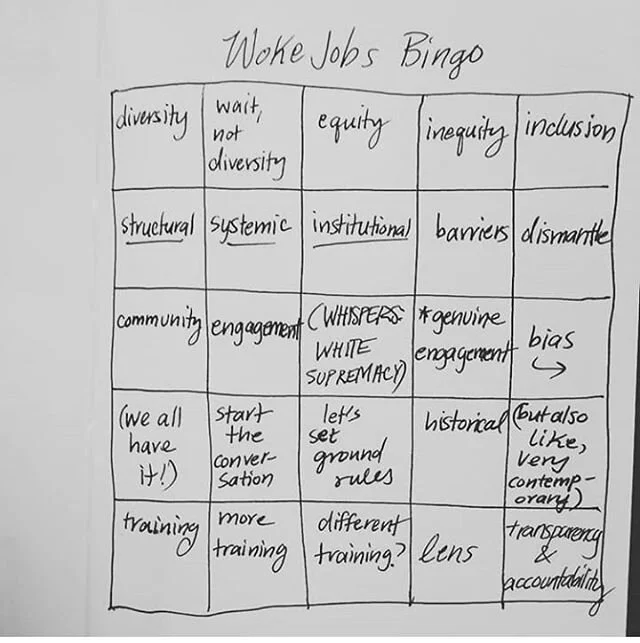 Woke Jobs Bingo
diversity
wait,
not
diversity
equity
inequity
inclusion
structural
systemic
institutional
barriers
dismantle
community
engagement
(WHISPERS:
WHITE
SUPREMACY)
*genuine
engagement
bias
(we all
have
it!)
start
the
conver-
sation
let's
set
ground
rules
historical
(but also
like,
very
contemp-
orary)
training
more
training
different
training?
lens
transparency
&
accountability